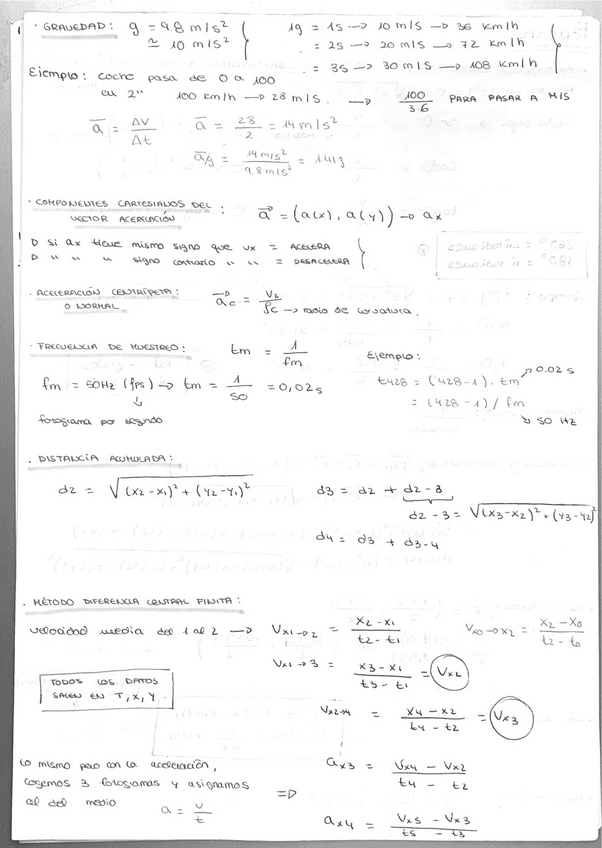 · GRAVEDAD: g = 9.8 m/s² } 1g = 1s → 10 m/s → 36 km/h
≃ 10 m/s² = 2s → 20 m/s → 72 km/h
= 3s → 30 m/s → 108 km/h
Ejemplo: coche pasa de 0 a 100
en 2" 100 km/h → 28 m/s. → 100/3.6 PARA PASAR A M/S
a̅ = ΔV/Δt a̅ = 28/2 = 14 m/s²
a̅/g = 14 m/s² / 9.8 m/s² = 1.41g
· COMPONENTES CARTESIANOS DEL
VECTOR ACERELACIÓN : a⃗ = (a(x), a(y)) → ax
D si ax tiene mismo signo que vx = ACELERA
D " " " signo contrario " " = DESACELERA
360° = 2π radianes
180° = π radianes
· ACELERACIÓN CENTRÍPETA:
O NORMAL
a⃗c = v2/ρc → radio de curvatura.
· FRECUENCIA DE MUESTREO: tm = 1/fm
fm = 50Hz (fps) → tm = 1/50 = 0,02s
↳
fotograma por segundo
Ejemplo:
t428 = (428-1). tm ↗ 0.02 s
= (428-1) / fm
↘ 50 HZ
· DISTANCIA ACUMULADA:
d2 = √(x2-x1)² + (y2-y1)² d3 = d2 + d2-3
d2-3 = √(x3-x2)² + (y3-y2)²
d4 = d3 + d3-4
· MÉTODO DIFERENCIA CENTRAL FINITA:
velocidad media del 1 al 2 → Vx1→2 = x2-x1 / t2-t1 Vx0→x2 = x2-x0 / t2-t0
Vx1→3 = x3-x1 / t3-t1 = Vx2
TODOS LOS DATOS
SALEN EN T, X, Y.
Vx2→4 = x4-x2 / t4-t2 = Vx3
Lo mismo pero con la aceleración,
cogemos 3 fotogramas y asignamos
al del medio a = v/t
⇒ ax3 = Vx4 - Vx2 / t4 - t2
ax4 = Vx5 - Vx3 / t5 - t3